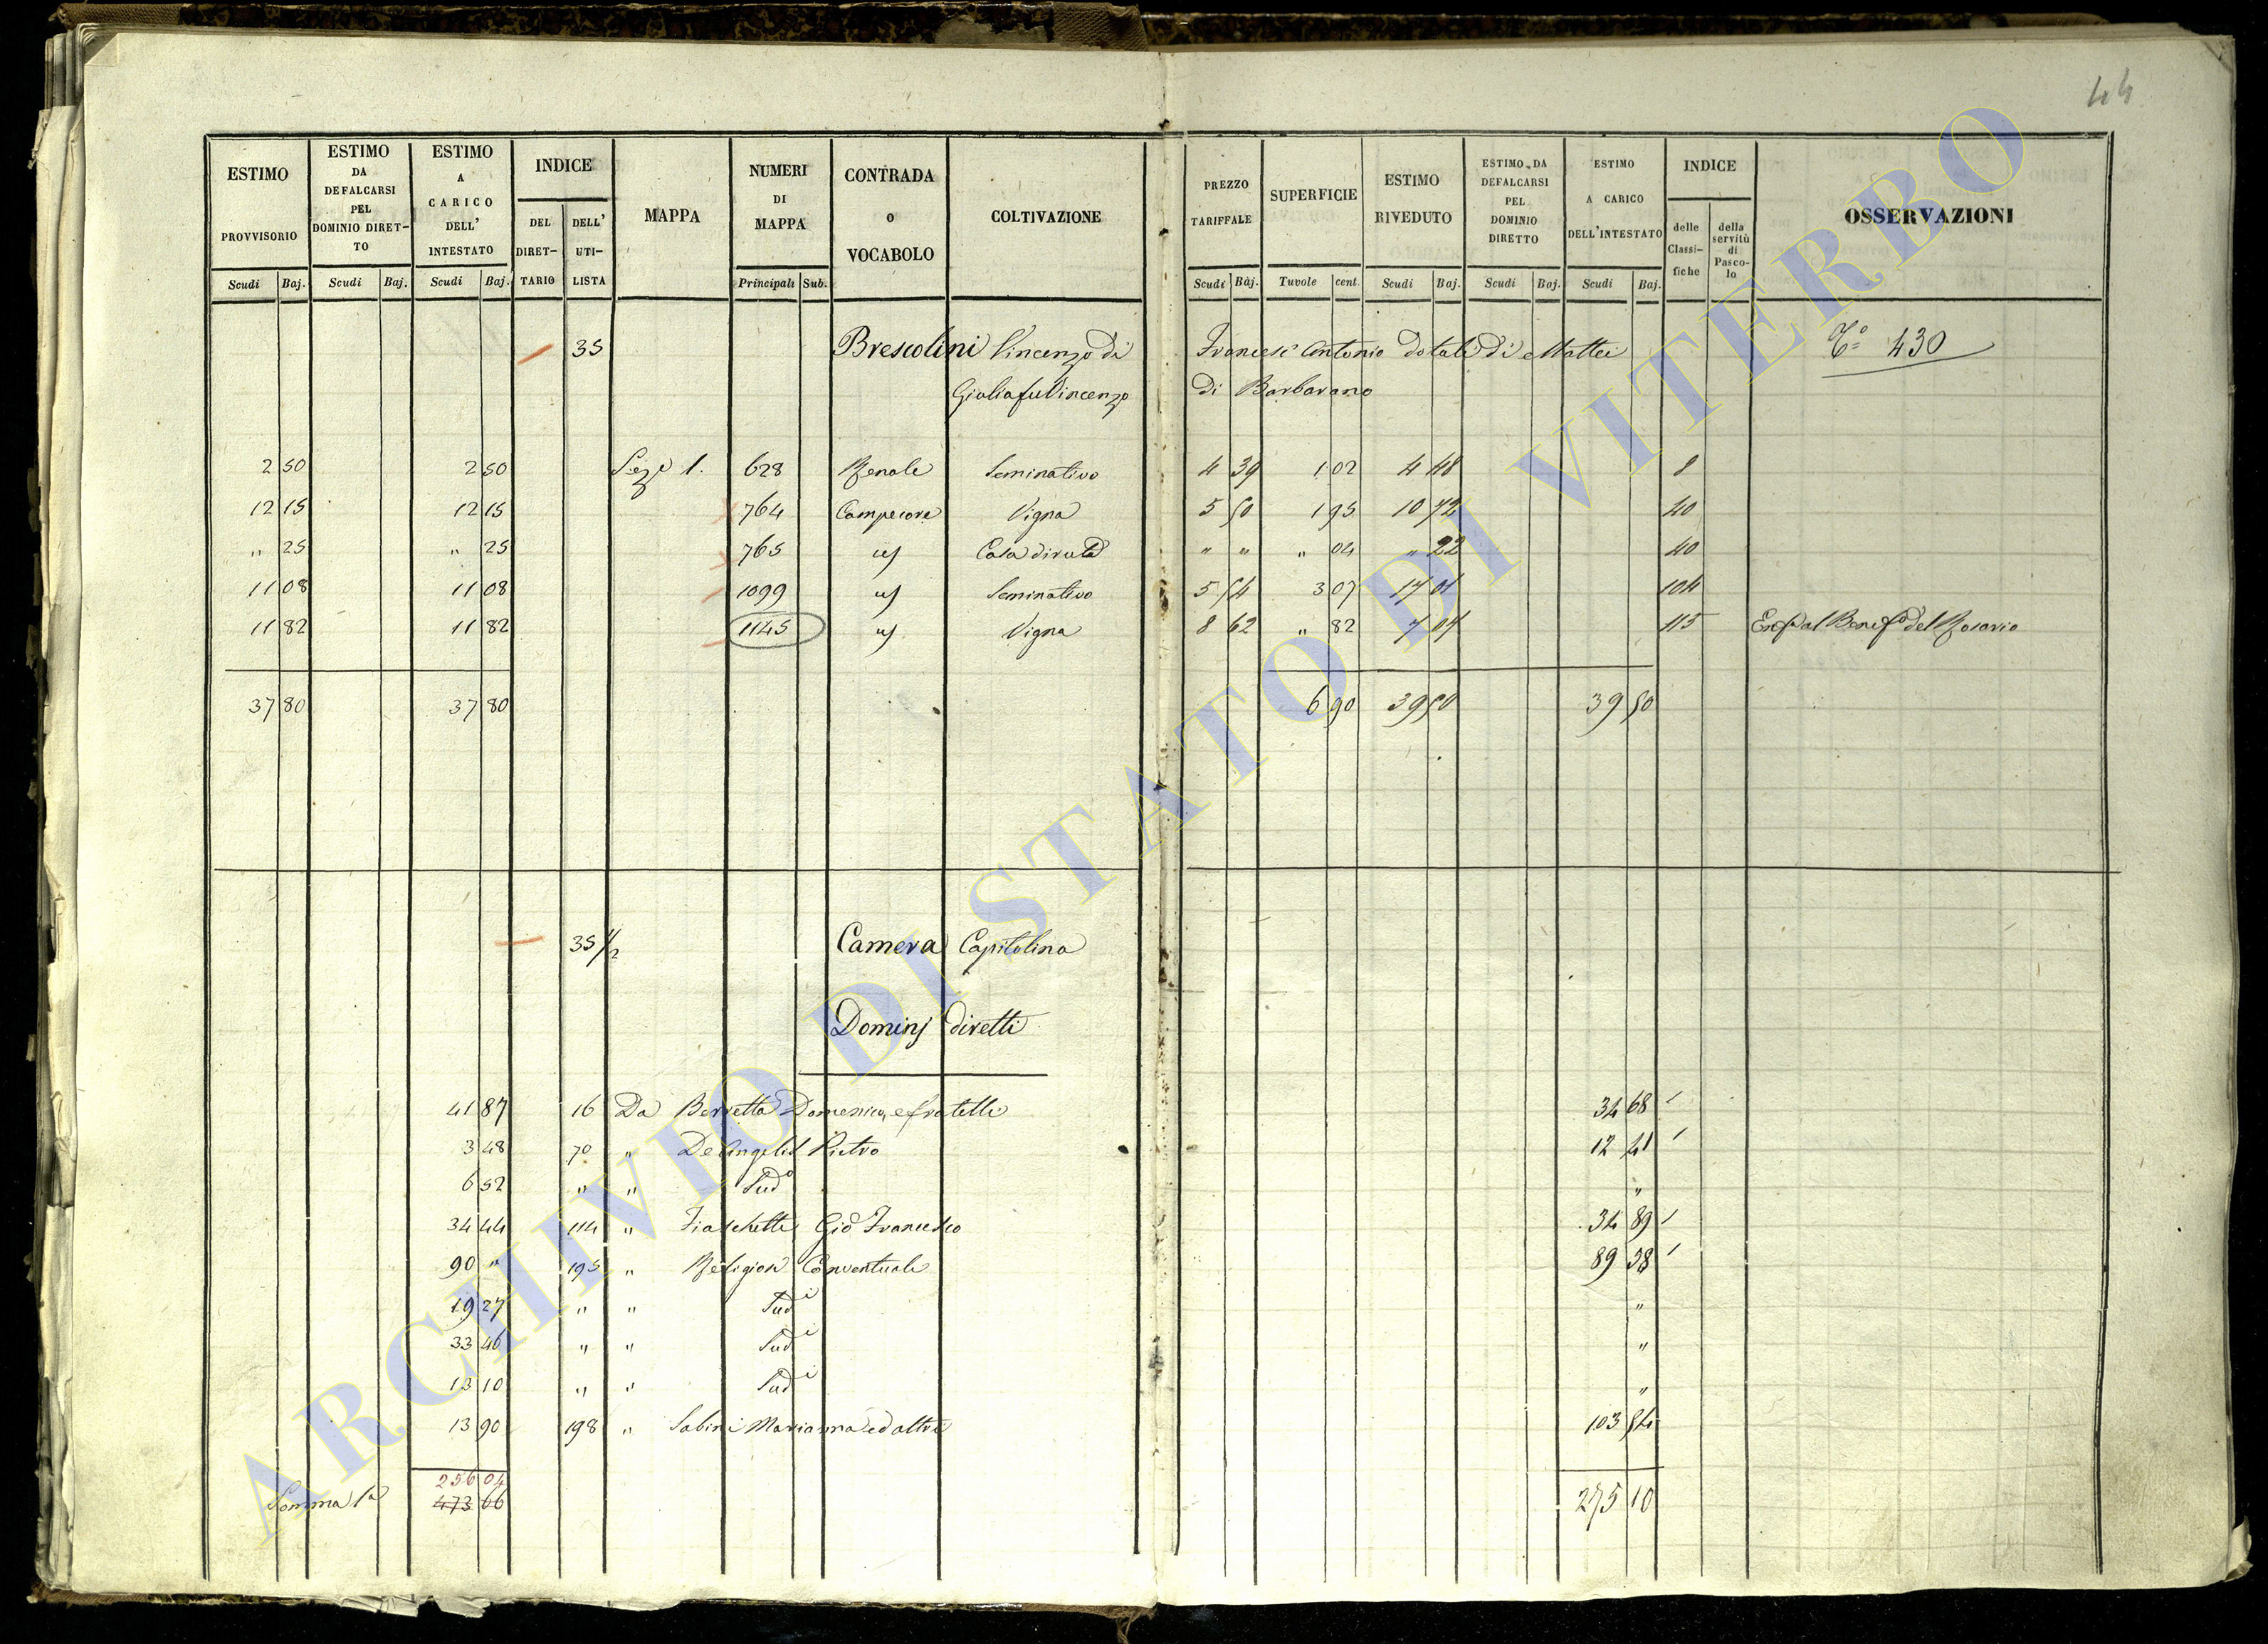 44
ESTIMO PROVVISORIO Scudi Baj.
ESTIMO DA DEFALCARSI PEL DOMINIO DIRET-TO Scudi Baj.
ESTIMO A CARICO DELL' INTESTATO Scudi Baj.
INDICE DEL DIRET-TARIO DELL' UTI-LISTA
MAPPA
NUMERI DI MAPPA Principali Sub.
CONTRADA O VOCABOLO
COLTIVAZIONE
PREZZO TARIFFALE Scudi Baj.
SUPERFICIE Tuvole cent.
ESTIMO RIVEDUTO Scudi Baj.
ESTIMO DA DEFALCARSI PEL DOMINIO DIRETTO Scudi Baj.
ESTIMO A CARICO DELL'INTESTATO Scudi Baj.
INDICE delle Classi-fiche della servitù di Pasco-lo
OSSERVAZIONI
35 Brescolini Vincenzo di Francesc' Antonio dotali di Mattei 430
Giulia fu Vincenzo di Barbarano
2 50 2 50 Sez. 1. 628 Renale Seminativo 4 39 1 02 4 48 8
12 15 12 15 764 Campecore Vigna 5 50 1 95 10 72 40
" 25 " 25 765 Casa diruta " " " 04 " 22 40
11 08 11 08 1099 Seminativo 5 54 3 07 17 01 104
11 82 11 82 1145 Vigna 8 62 " 82 7 07 115 al Benef.o del Rosario
37 80 37 80 6 90 39 50 39 50
35 1/2 Camera Capitolina
Dominj diretti
41 87 16 Da Berretta Domenico, e fratelli 34 68
3 48 70 " De Angelis Pietro 12 41
6 52 " " Sud.o "
34 44 114 " Fiaschetti Gio Francesco 34 89
90 " 195 " Religiosi Conventuali 89 58
19 27 " " Sud.i "
33 46 " " Sud.i "
13 10 " " Sud.i "
13 90 198 " Sabini Marianna ed altri 103 54
256 04
Somma 473 66 275 10
ARCHIVIO DI STATO DI VITERBO